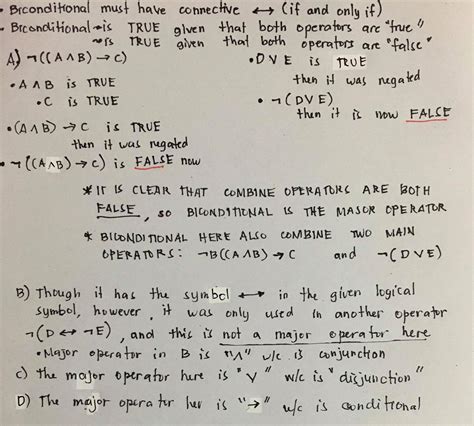 - Biconditional must have connective ↔ (if and only if)
- Biconditional → is TRUE given that both operators are "true"
→ is TRUE given that both operators are "false"
A) ¬((A ∧ B) → C)
• D V E is TRUE
then it was negated
• A ∧ B is TRUE
• C is TRUE
• ¬(D V E)
then it is now FALSE
• (A ∧ B) → C is TRUE
then it was negated
• ¬((A ∧ B) → C) is FALSE now
* IT IS CLEAR THAT COMBINE OPERATORS ARE BOTH
FALSE, SO BICONDITIONAL IS THE MAJOR OPERATOR
* BICONDITIONAL HERE ALSO COMBINE TWO MAIN
OPERATORS: ¬B((A ∧ B) → C and ¬(D V E)
B) Though it has the symbol ↔ in the given logical
symbol, however, it was only used in another operator
¬(D ↔ ¬E), and this is not a major operator here
• Major operator in B is "∧" w/c is conjunction
C) The major operator here is "V" w/c is "disjunction"
D) The major operator her is "→" w/c is conditional